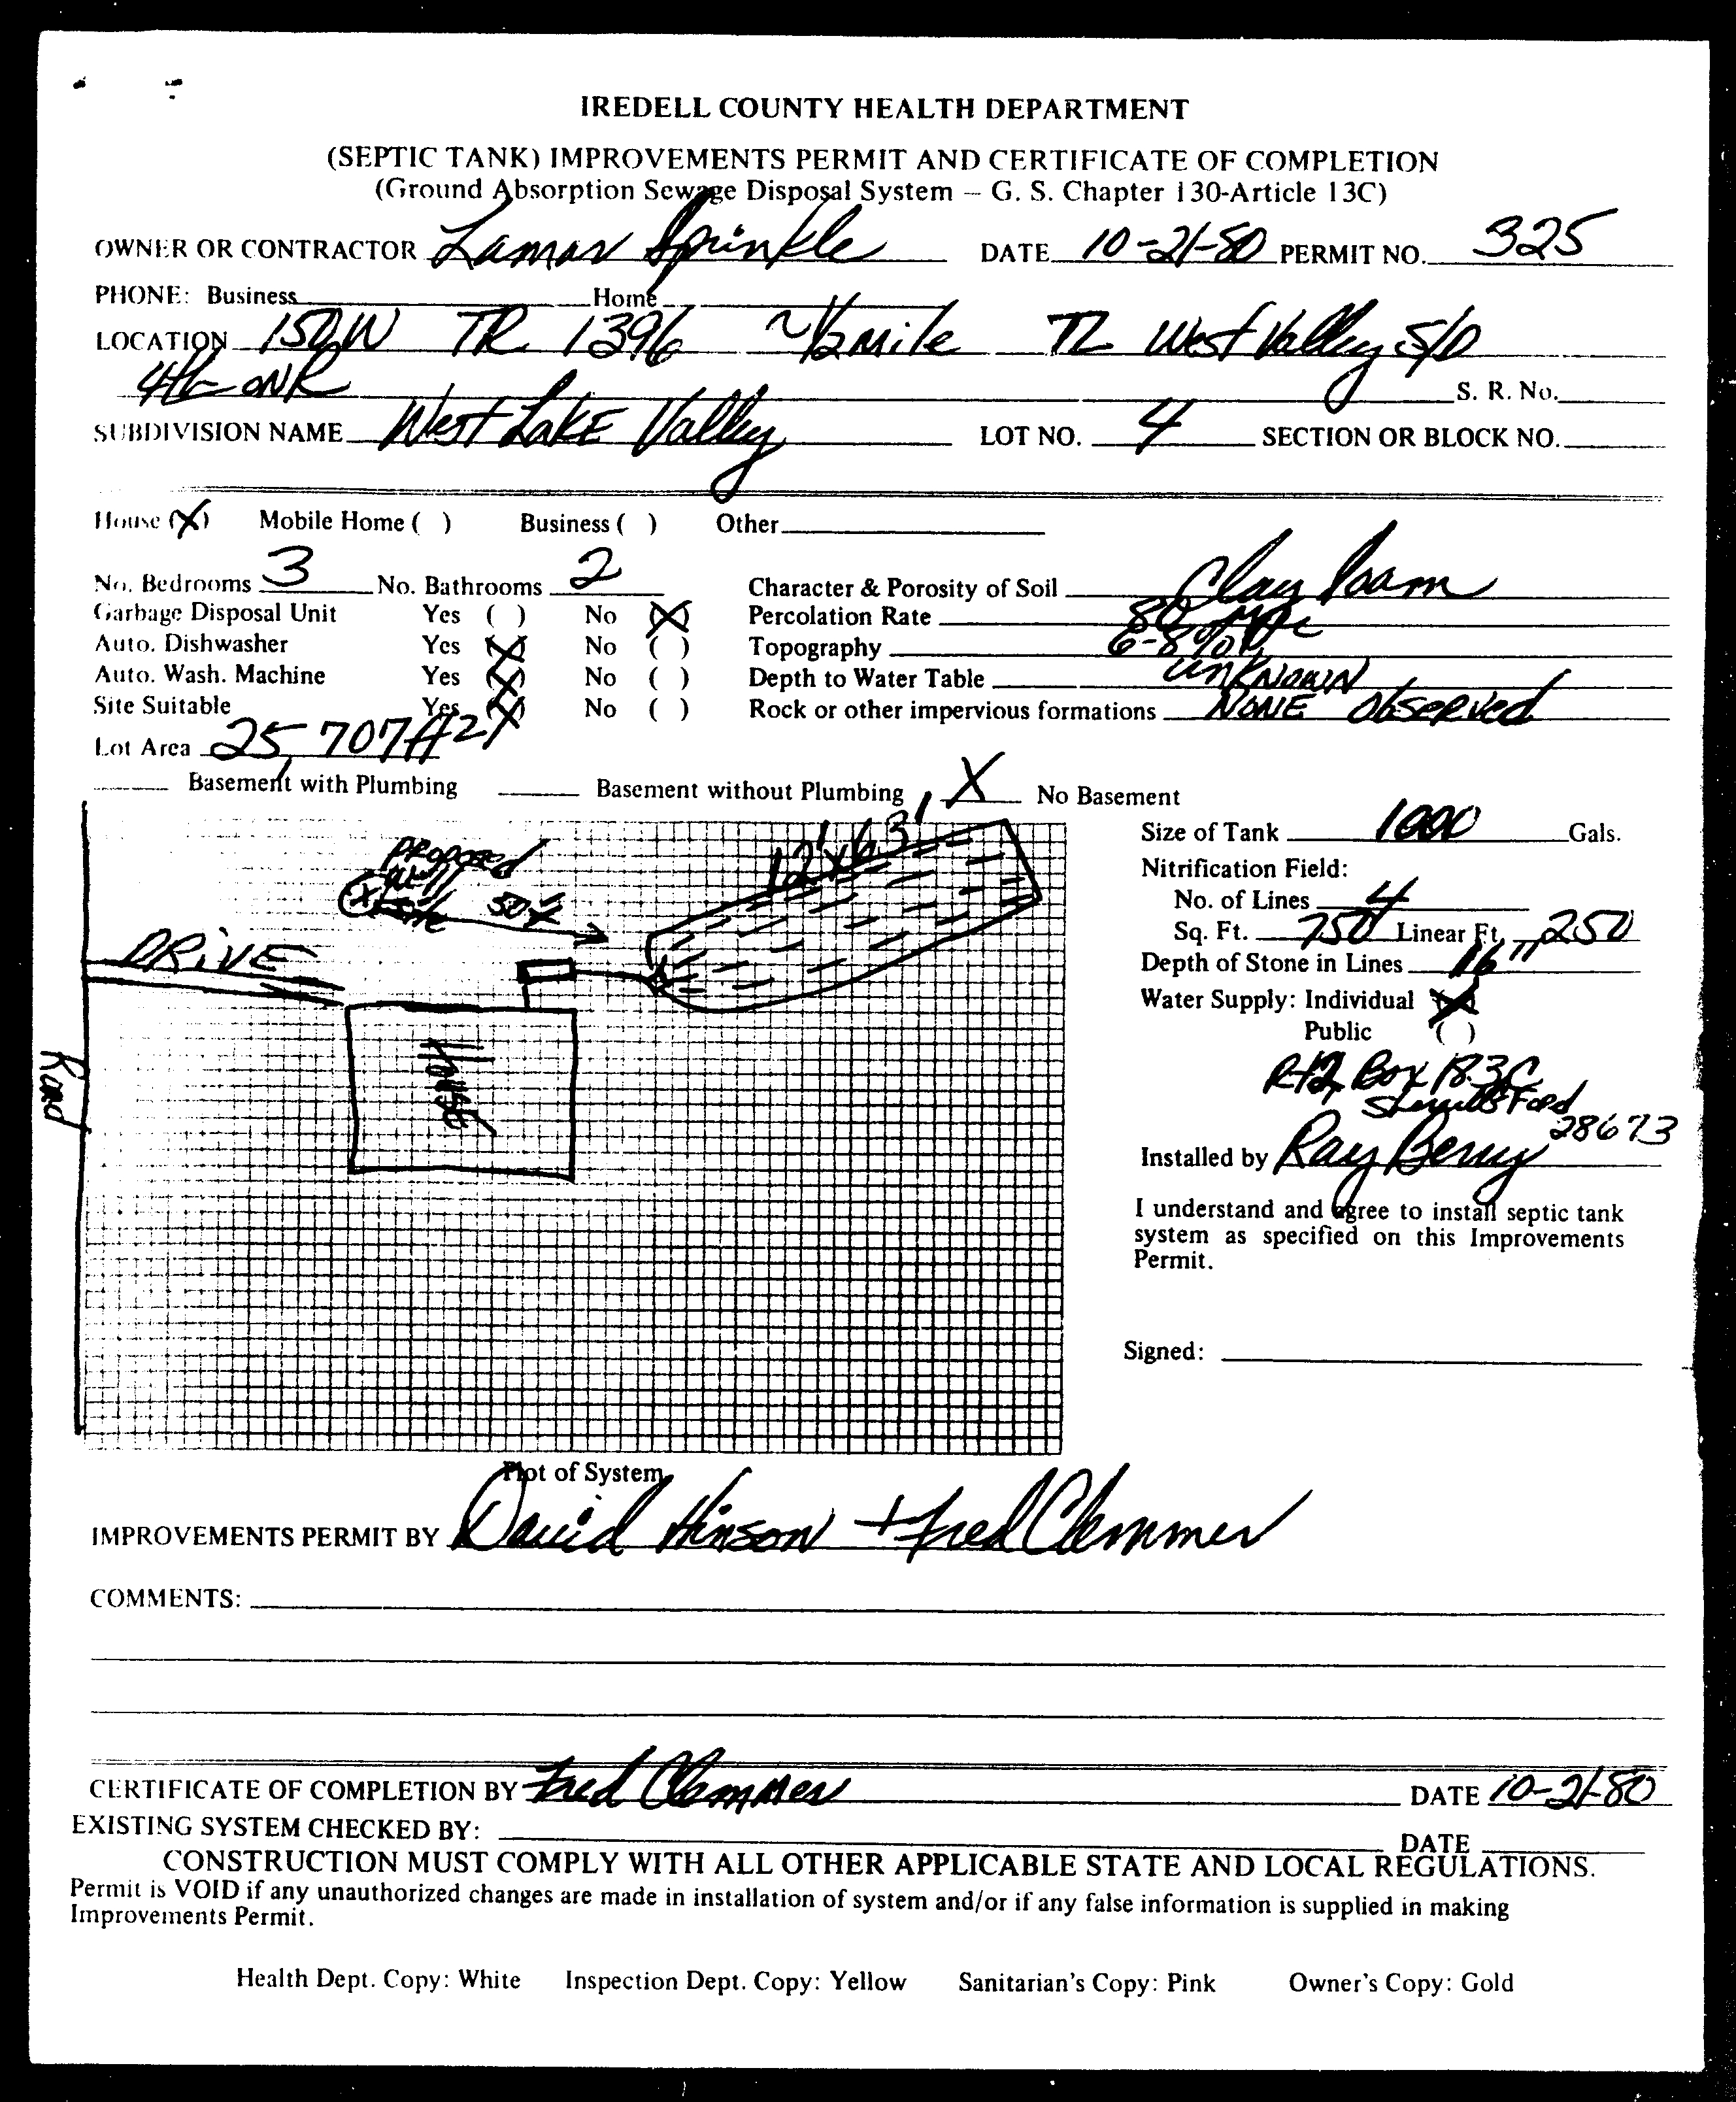 IREDELL COUNTY HEALTH DEPARTMENT
(SEPTIC TANK) IMPROVEMENTS PERMIT AND CERTIFICATE OF COMPLETION
(Ground Absorption Sewage Disposal System – G. S. Chapter 130-Article 13C)
OWNER OR CONTRACTOR Lamar Sprinkle DATE 10-21-80 PERMIT NO. 325
PHONE: Business Home
LOCATION 150W TR 1396 ~1/2 mile TL West Valley S/D
4th on R S. R. No.
SUBDIVISION NAME West Lake Valley LOT NO. 4 SECTION OR BLOCK NO.
House (X) Mobile Home ( ) Business ( ) Other
No. Bedrooms 3 No. Bathrooms 2 Character & Porosity of Soil Clay loam
Garbage Disposal Unit Yes ( ) No (X) Percolation Rate 80
Auto. Dishwasher Yes (X) No ( ) Topography 6-8%
Auto. Wash. Machine Yes (X) No ( ) Depth to Water Table unknown
Site Suitable Yes (X) No ( ) Rock or other impervious formations NONE Observed
Lot Area 25,707 ft2
Basement with Plumbing Basement without Plumbing X No Basement
proposed
well
site
50'
12'x63'
DRIVE
House
Road
Size of Tank 1000 Gals.
Nitrification Field:
No. of Lines 4
Sq. Ft. 750 Linear Ft. 250
Depth of Stone in Lines 16"
Water Supply: Individual (X)
Public ( )
Rt2, Box 183C
Sherrills Ford
28673
Installed by Ray Berry
I understand and agree to install septic tank
system as specified on this Improvements
Permit.
Signed:
Plot of System
IMPROVEMENTS PERMIT BY David Hinson + Fred Clemmer
COMMENTS:
CERTIFICATE OF COMPLETION BY Fred Clemmer DATE 10-21-80
EXISTING SYSTEM CHECKED BY: DATE
CONSTRUCTION MUST COMPLY WITH ALL OTHER APPLICABLE STATE AND LOCAL REGULATIONS.
Permit is VOID if any unauthorized changes are made in installation of system and/or if any false information is supplied in making
Improvements Permit.
Health Dept. Copy: White Inspection Dept. Copy: Yellow Sanitarian's Copy: Pink Owner's Copy: Gold